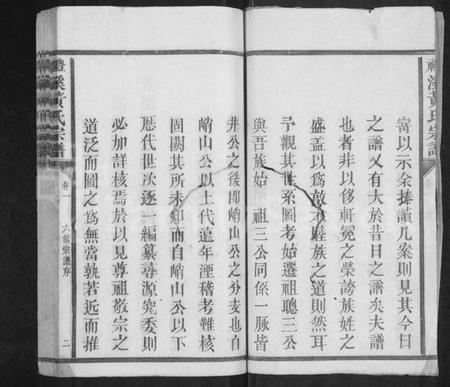 寄以示余捧讀几案則見其今日
之譜又有大於昔日之譜矣夫譜
也者非以侈軒冕之榮誇族姓之
盛蓋以為敬宗睦族之道則然耳
予觀其世系圖考始遷祖聰三公
與吾族始 祖三公同係一脉皆
井公之後即峭山公之分支也自
峭山公以上代遠年湮稽考難核
固闕其所未知而自峭山公以下
歷代世次逐一編纂尋源究委則
必加詳核焉於以見尊祖敬宗之
道泛而圖之為無當孰若近而推
溪黃氏宗譜
卷一
六修宗譜序
二